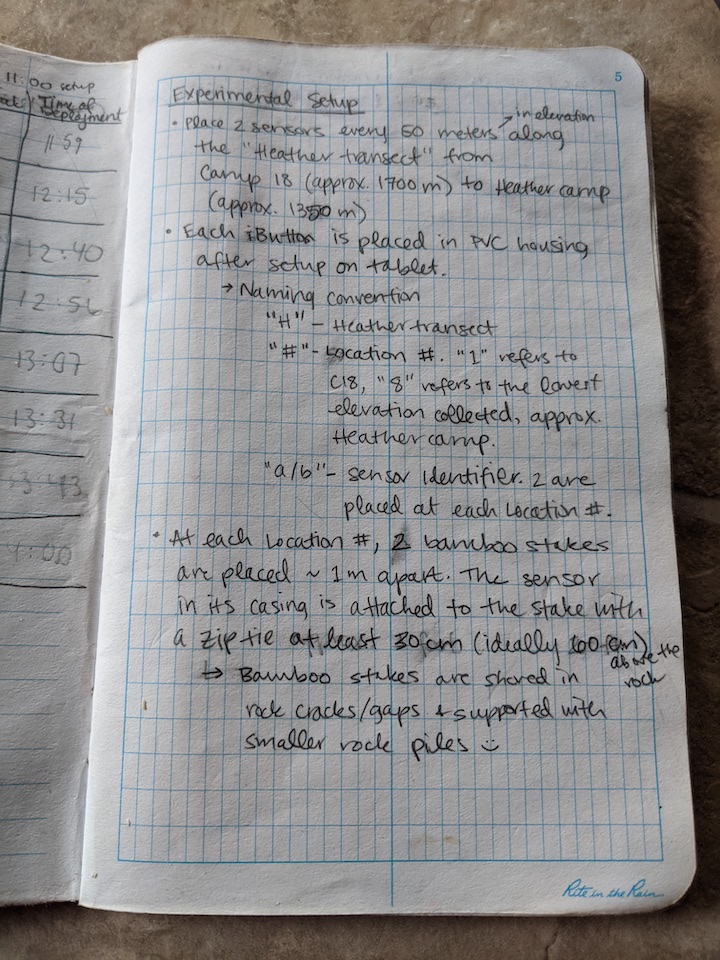 11:00 setup
Time of
Deployment
11:59
12:15
12:40
12:56
13:07
13:31
13:43
:00
5
Experimental Setup
in elevation
• Place 2 sensors every 50 meters along
the "Heather transect" from
Camp 18 (approx. 1700 m) to Heather camp
(approx. 1350 m)
• Each iButton is placed in PVC housing
after setup on tablet.
→ Naming convention
"H" - Heather transect
"#" - Location #. "1" refers to
C18, "8" refers to the lowest
elevation collected, approx.
Heather camp.
"a/b" - sensor identifier. 2 are
placed at each Location #.
• At each Location #, 2 bamboo stakes
are placed ~ 1m apart. The sensor
in its casing is attached to the stake with
a zip tie at least 30cm (ideally 100 cm)
above the
rock
↳ Bamboo stakes are shoved in
rock cracks/gaps & supported with
smaller rock piles :)
Rite in the Rain